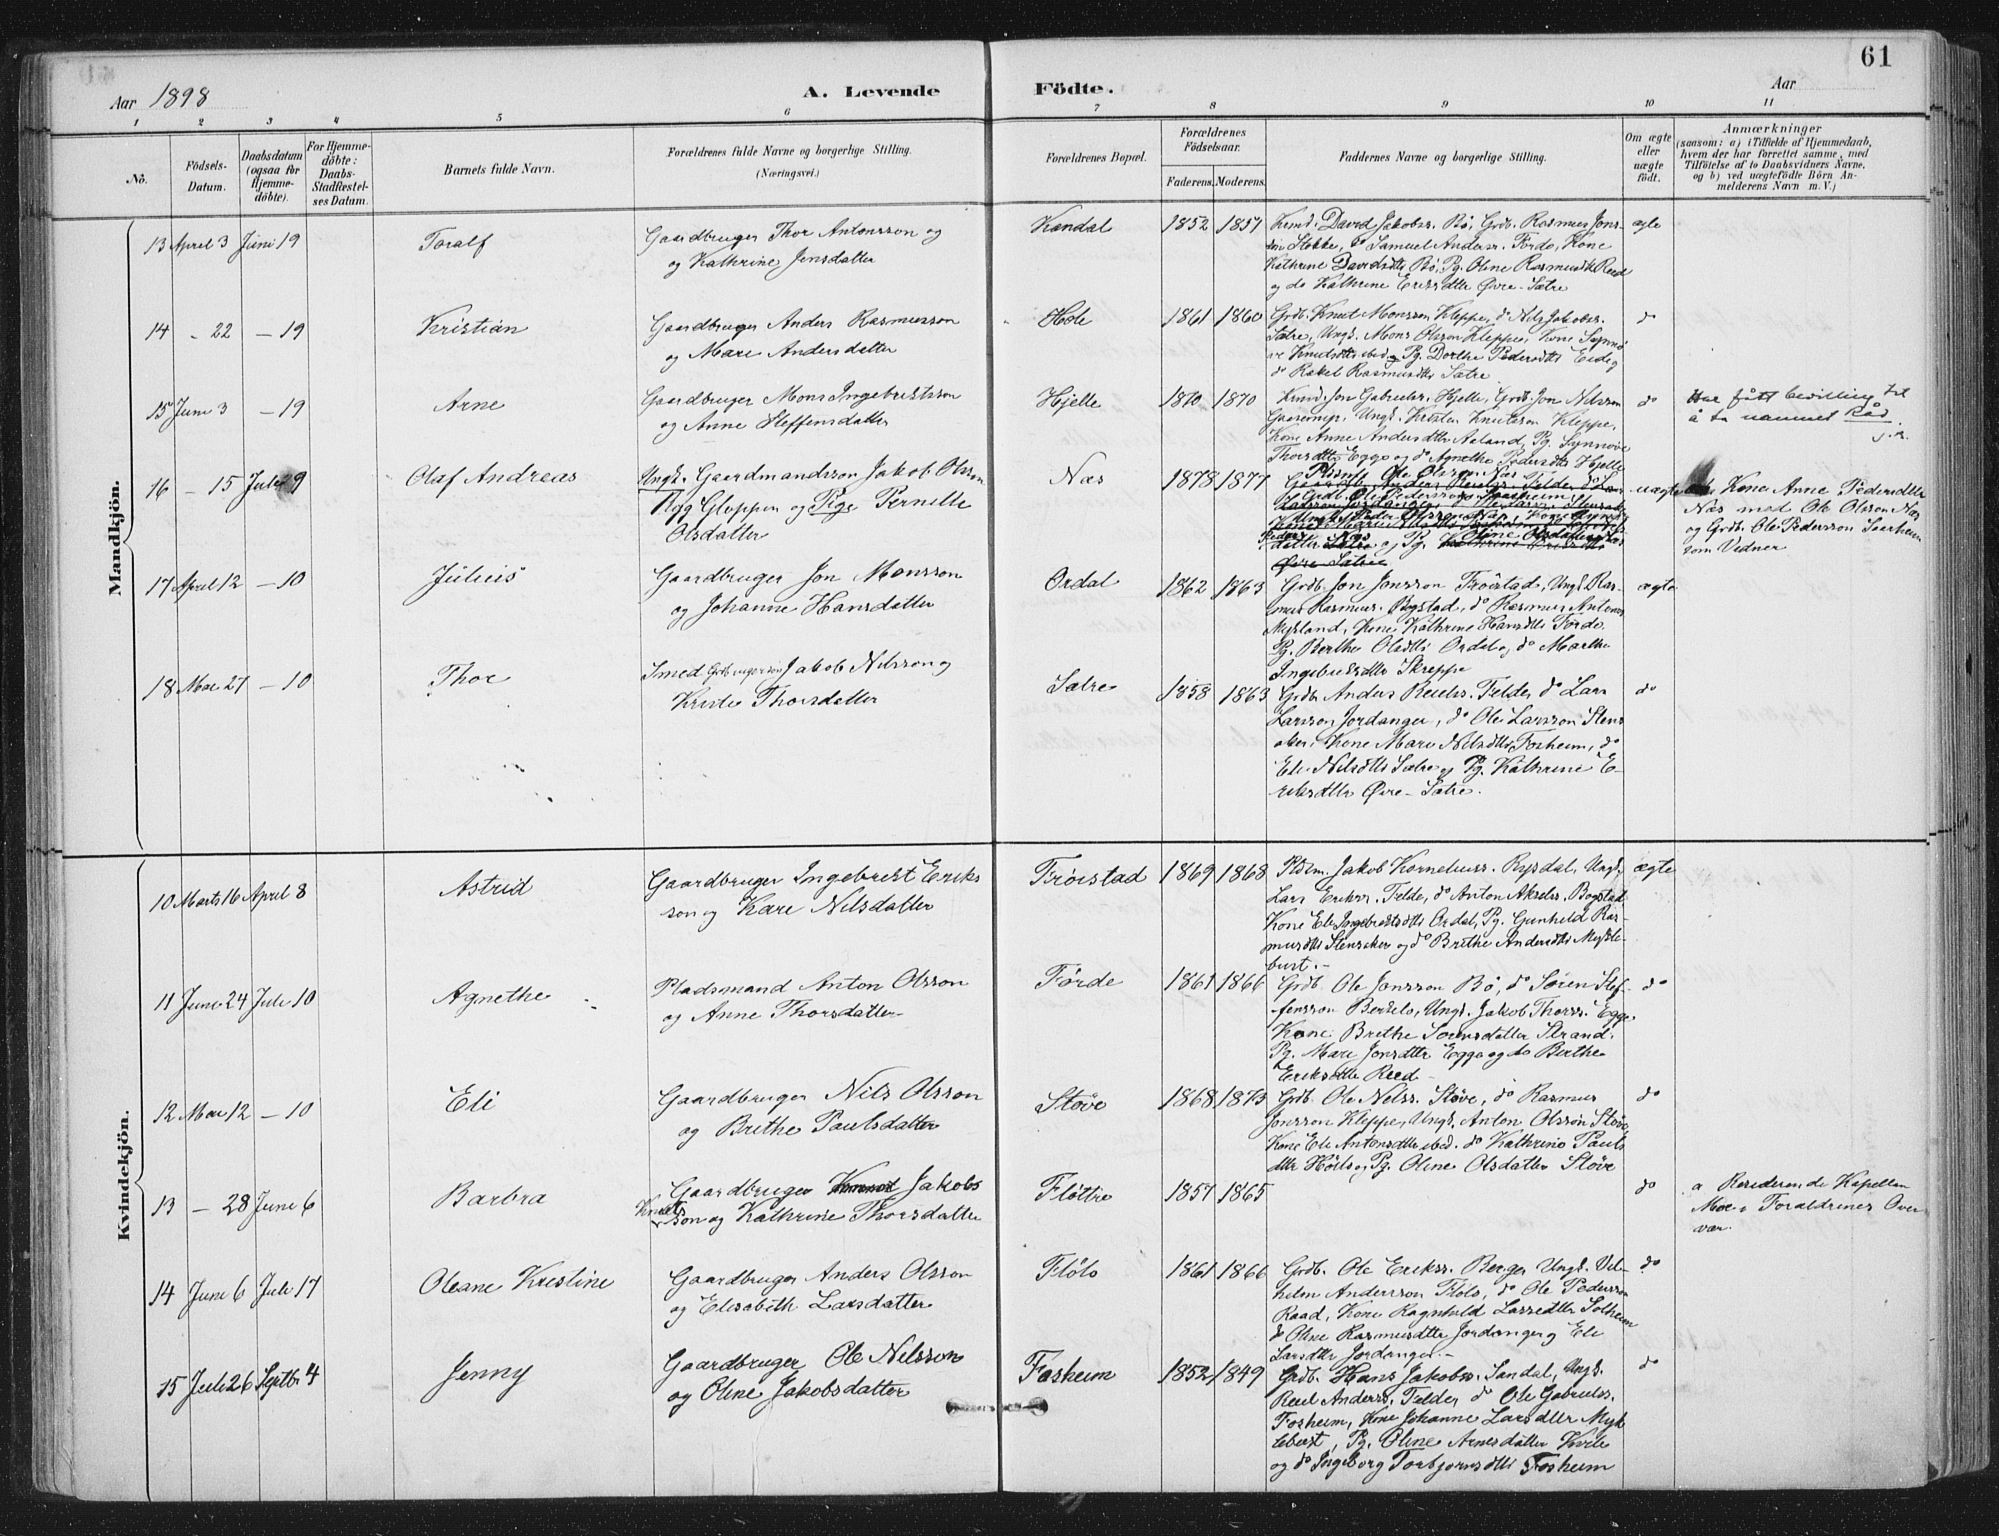 61
Aar 1898
A. Levende Födte.
Aar
1 2 3 4 5 6 7 8 9 10 11
No.
Födsels-Datum.
Daabsdatum (ogsaa for Hjemme-döbte).
For Hjemme-döbte: Daabs-Stadfæstel-ses Datum.
Barnets fulde Navn.
Forældrenes fulde Navne og borgerlige Stilling.
(Næringsvei.)
Forældrenes Bopæl.
Forældrenes Födselsaar.
Faderens. Moderens.
Faddernes Navne og borgerlige Stilling.
Om ægte eller uægte födt.
Anmærkninger
(saasom: a) i Tilfælde af Hjemmedaab,
hvem der har forrettet samme, med
Tilföielse af to Daabsvidners Navne,
og b) ved uægtefödte Börn An-
melderens Navn m. V.)
Mandkjön.
13 April 3 Juni 19 Toralf
Gaardbruger Thor Antonsson og
og Kathrine Jensdatter
Kandal 1852 1857
Krmd. David Jakobss. Bø, Grdb. Rasmus Jons-
son Stokke, do Samuel Anderss. Førde, Kone
Kathrine Davidsdtr Bø, Pg. Oline Rasmusdtr Reed
og do Kathrine Eriksdtr Øvre-Sætre
ægte
14 - 22 - 19 Kristian
Gaardbruger Anders Rasmusson
og Mari Andersdatter
Hole 1861 1860
Grdb. Knut Monsson Kleppe, do Nils Jakobss.
Sætre, Ungk. Mons Olsson Kleppe, Kone Synnø-
ve Knutsdtr ibid., Pg. Dorthe Pedersdtr Eide og
do Rakel Rasmusdtr Sætre
do
15 Juni 3 - 19 Arne
Gaardbruger Mons Ingebrigtsson
og Anne Steffensdatter
Hjelle 1870 1870
Krmd. Jon Gabrielss. Hjelle, Grdb. Jon Nilsson
Gaasemyr, Ungk. Kristen Knutsson Kleppe,
Kone Anne Andersdtr Aaland, Pg. Synnøve
Thorsdtr Egge og do Agnethe Pedersdtr Hjelle
do
Har fått bevilling til
å ta navnet Råd
16 - 15 Juli 9 Olaf Andreas
Ungk. Gaardmandssøn Jakob Olsson
Rygg Gloppen og Pige Pernille
Olsdatter
Næs 1878 1877
Ole Olsson Næs
Grdb. Ole Pedersson Saarheim,
Ungk. Peder Olsson Næs, Kone
datter Næs og Pg. Oline Olsdatter Næs
uægte
Kone Anne Pedersdtr
Næs med Ole Olsson Næs
og Grdb. Ole Pedersson Saarheim
som Vidner
17 April 12 - 10 Julius
Gaardbruger Jon Monsson
og Johanne Hansdatter
Ordal 1862 1863
Grdb. Jon Jonsson Trøistad, Ungk. Ras-
mus Rasmuss. Bogstad, do Rasmus Antons.
Mykland, Kone Kathrine Hansdtr Førde
Pg. Berthe Olsdtr Ordal og do Marthe
Ingebrigtsdtr Skreppe
ægte
18 Mai 27 - 10 Thor
Smed Grdbrugerson Jakob Nilsson og
Kristi Thorsdatter
Sætre 1858 1863
Grdb. Anders Reielss. Felde, do Lars
Larsson Jordanger, do Ole Larsson Stens-
aker, Kone Mari Nilsdtr Fosheim, do
Eli Nilsdtr Sætre og Pg. Kathrine E-
riksdtr Øvre-Sætre.
do
Kvindekjön.
10 Marts 16 April 8 Astrid
Gaardbruger Ingebrigt Eriks
son og Kari Nilsdatter
Trøistad 1869 1868
Pldsm. Jakob Korneliuss. Rysdal, Ungk.
Lars Erikss. Felde, do Anton Akselss. Bogstad
Kone Eli Ingebrigtsdtr Ordal, Pg. Gunhild Ras-
musdtr Stensaker og do Brithe Andersdtr Mykle-
bust.-
ægte
11 Juni 24 Juli 10 Agnethe
Pladsmand Anton Olsson
og Anne Thorsdatter
Førde 1861 1866
Grdb. Ole Jonsson Bø, do Søren Stef-
fensson Berdelo, Ungk. Jakob Thorss. Egge,
Kone Brithe Sørensdatter Strand.
Pg. Mari Jonsdtr Egge og do Berthe
Eriksdtr Reed
do
12 Mai 12 - 10 Eli
Gaardbruger Nils Olsson
og Brithe Paulsdatter
Støve 1868 1873
Grdb. Ole Nilss. Støve, do Rasmus
Jonsson Kleppe, Ungk. Anton Olsson Støve,
Kone Eli Antonsdtr ibid. do Kathrine Pauls
dtr Hole og Pg. Oline Olsdatter Støve
do
13 - 28 Juni 6 Barbra
Gaardbruger Jakobs
Knuts
son og Kathrine Thorsdatter
Fløttre 1857 1865
do
a Residerende Kapellan
Moe i Forældrenes Over
vær.
14 Juni 6 Juli 17 Oleane Kristine
Gaardbruger Anders Olsson
og Elisabeth Larsdatter
Fløls 1861 1866
Grdb. Ole Erikss. Berge, Ungk. Vil-
helm Andersson Fløls, do Ole Pedersson
Raad, Kone Ragnhild Larsdtr Solheim
do Oline Rasmusdtr Jordanger og Eli
Larsdtr Jordanger.-
do
15 Juli 26 Septbr 4 Jenny
Gaardbruger Ole Nilsson
og Oline Jakobsdatter
Fosheim 1852 1849
Grdb. Hans Jakobss. Sandal, Ungk.
Reiel Anderss. Felde, do Ole Gabrielss.
Fosheim, Kone Johanne Larsdtr Myk
lebust, Pg. Oline Arnesdatter Kvile
og do Ingeborg Torbjørnsdtr Fosheim
do